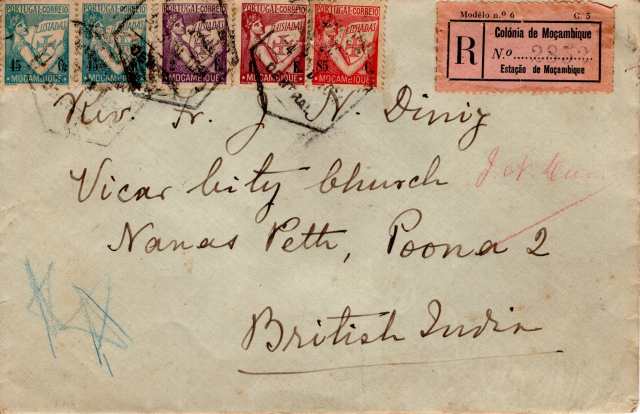 PORTUGAL·CORREIO PORTUGAL·CORREIO PORTUGAL·CORREIO PORTUGAL·CORREIO PORTUGAL·CORREIO
LUSIADAS LUSIADAS LUSIADAS
15 C. 15 85
MOÇAMBIQUE MOÇAMBIQUE MOÇAMBIQUE MOÇAMBIQUE MOÇAMBIQUE
CENTRAL
Modêlo n.º 6 C. 5
R
Colónia de Moçambique
N.º
Estação de Moçambique
Rev. Fr. J. N. Diniz
Vicar City Church
Nanas Peth, Poona 2
British India